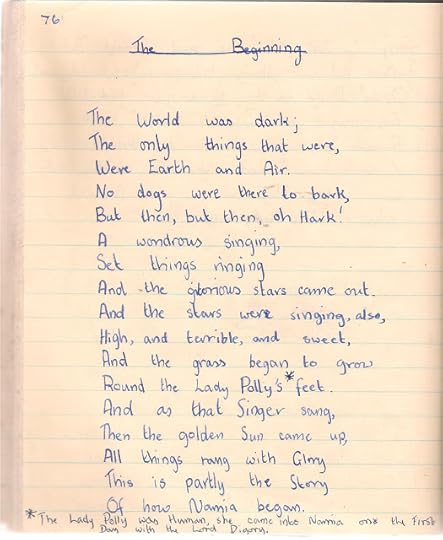 76
The Beginning
The World was dark;
The only things that were,
Were Earth and Air.
No dogs were there to bark,
But then, but then, oh Hark!
A wondrous singing,
Set things ringing
And the glorious stars came out.
And the stars were singing, also,
High, and terrible, and sweet,
And the grass began to grow
Round the Lady Polly's* feet.
And as that Singer sang,
Then the golden Sun came up,
All things rang with Glory
This is partly the Story
Of how Narnia began.
*The Lady Polly was Human, she came into Narnia on the First
Day with the Lord Digory.